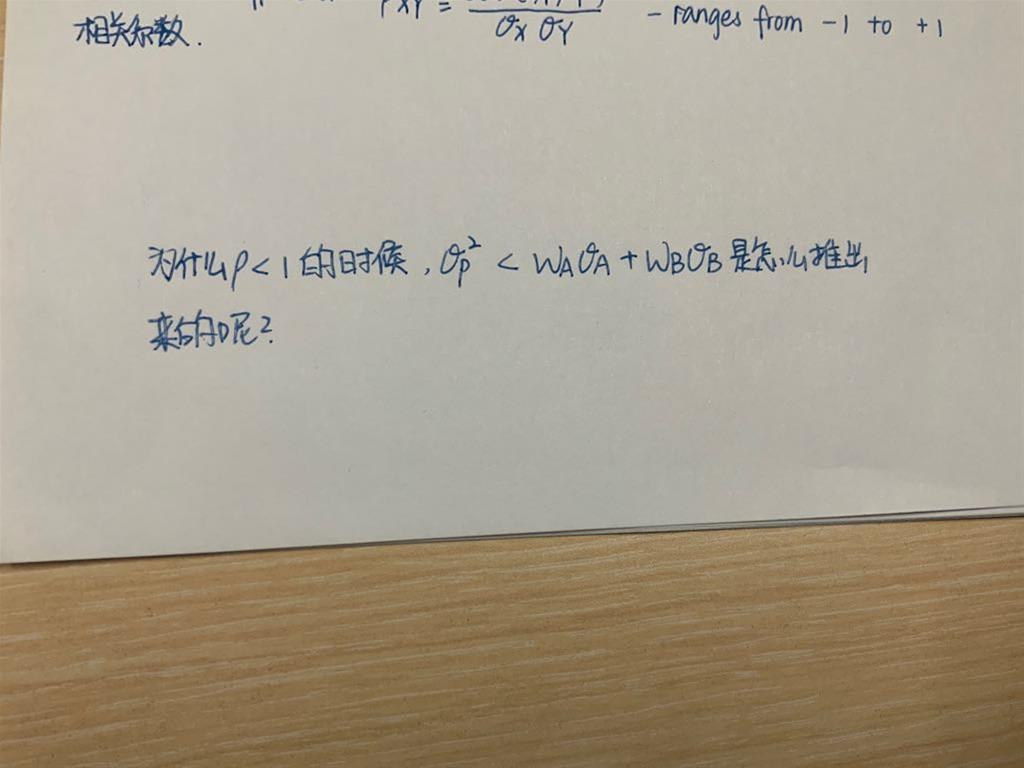 相关系数. ρXY = σX σY - ranges from -1 to +1
为什么ρ < 1 的时候, σp² < WAσA + WBσB 是怎么推出
来的呢?